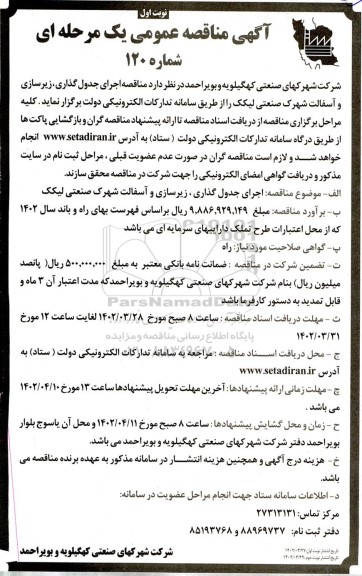 نوبت اول
آگهی مناقصه عمومی یک مرحله ای
شماره ۱۲۰
شرکت شهرکهای صنعتی کهگیلویه و بویراحمد در نظر دارد مناقصه اجرای جدول گذاری، زیرسازی
و آسفالت شهرک صنعتی لیکک را از طریق سامانه تدارکات الکترونیکی دولت برگزار نماید. کلیه
مراحل برگزاری مناقصه از دریافت اسناد مناقصه تا ارائه پیشنهاد مناقصه گران و بازگشایی پاکت ها
از طریق درگاه سامانه تدارکات الکترونیکی دولت (ستاد) به آدرس www.setadiran.ir انجام
خواهد شد و لازم است مناقصه گران در صورت عدم عضویت قبلی، مراحل ثبت نام در سایت
مذکور و دریافت گواهی امضای الکترونیکی را جهت شرکت در مناقصه محقق سازند.
الف- موضوع مناقصه: اجرای جدول گذاری، زیرسازی و آسفالت شهرک صنعتی لیکک
ب- برآورد مناقصه: مبلغ ۹،۸۸۶،۹۲۹،۱۴۹ ریال براساس فهرست بهای راه و باند سال ۱۴۰۲
که از محل اعتبارات طرح تملک داراییهای سرمایه ای می باشد
پ- گواهی صلاحیت مورد نیاز: راه
ت- تضمین شرکت در مناقصه: ضمانت نامه بانکی معتبر به مبلغ ۵۰۰،۰۰۰،۰۰۰ ریال( پانصد
میلیون ریال) بنام شرکت شهرکهای صنعتی کهگیلویه و بویراحمد که مدت اعتبار آن ۳ ماه و
قابل تمدید به دستور کارفرما باشد
ث- مهلت دریافت اسناد مناقصه: ساعت ۸ صبح مورخ ۱۴۰۲/۰۳/۲۸ لغایت ساعت ۱۲ مورخ
۱۴۰۲/۰۳/۳۱
ج- محل دریافت اسناد مناقصه: مراجعه به سامانه تدارکات الکترونیکی دولت (ستاد) به
آدرس www.setadiran.ir
چ- مهلت زمانی ارائه پیشنهادها: آخرین مهلت تحویل پیشنهادها ساعت ۱۳ مورخ ۱۴۰۲/۰۴/۱۰
می باشد.
ح- زمان و محل گشایش پیشنهادها: ساعت ۸ صبح مورخ ۱۴۰۲/۰۴/۱۱ و محل آن یاسوج بلوار
بویراحمد دفتر شرکت شهرکهای صنعتی کهگیلویه و بویراحمد می باشد.
خ- هزینه درج آگهی و همچنین هزینه انتشار در سامانه مذکور به عهده برنده مناقصه می
باشد.
د- اطلاعات سامانه ستاد جهت انجام مراحل عضویت در سامانه:
مرکز تماس: ۲۷۳۱۳۱۳۱
دفتر ثبت نام: ۸۸۹۶۹۷۳۷ و ۸۵۱۹۳۷۶۸
شرکت شهرکهای صنعتی کهگیلویه و بویراحمد
تاریخ انتشار نوبت اول: ۱۴۰۲/۰۳/۲۷